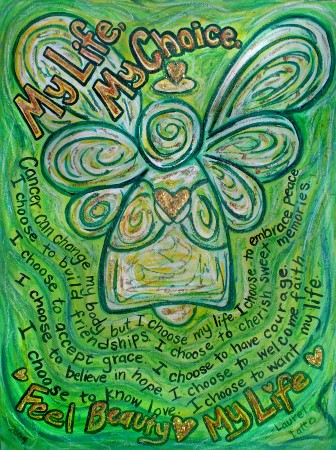 My Life,
My Choice.
Cancer can change my body but I choose my life I choose to embrace peace
I choose to build friendships. I choose to cherish sweet memories.
I choose to accept grace I choose to have courage.
I choose to believe in hope. I choose to welcome faith
I choose to know love. I choose to want my life
Feel Beauty My Life